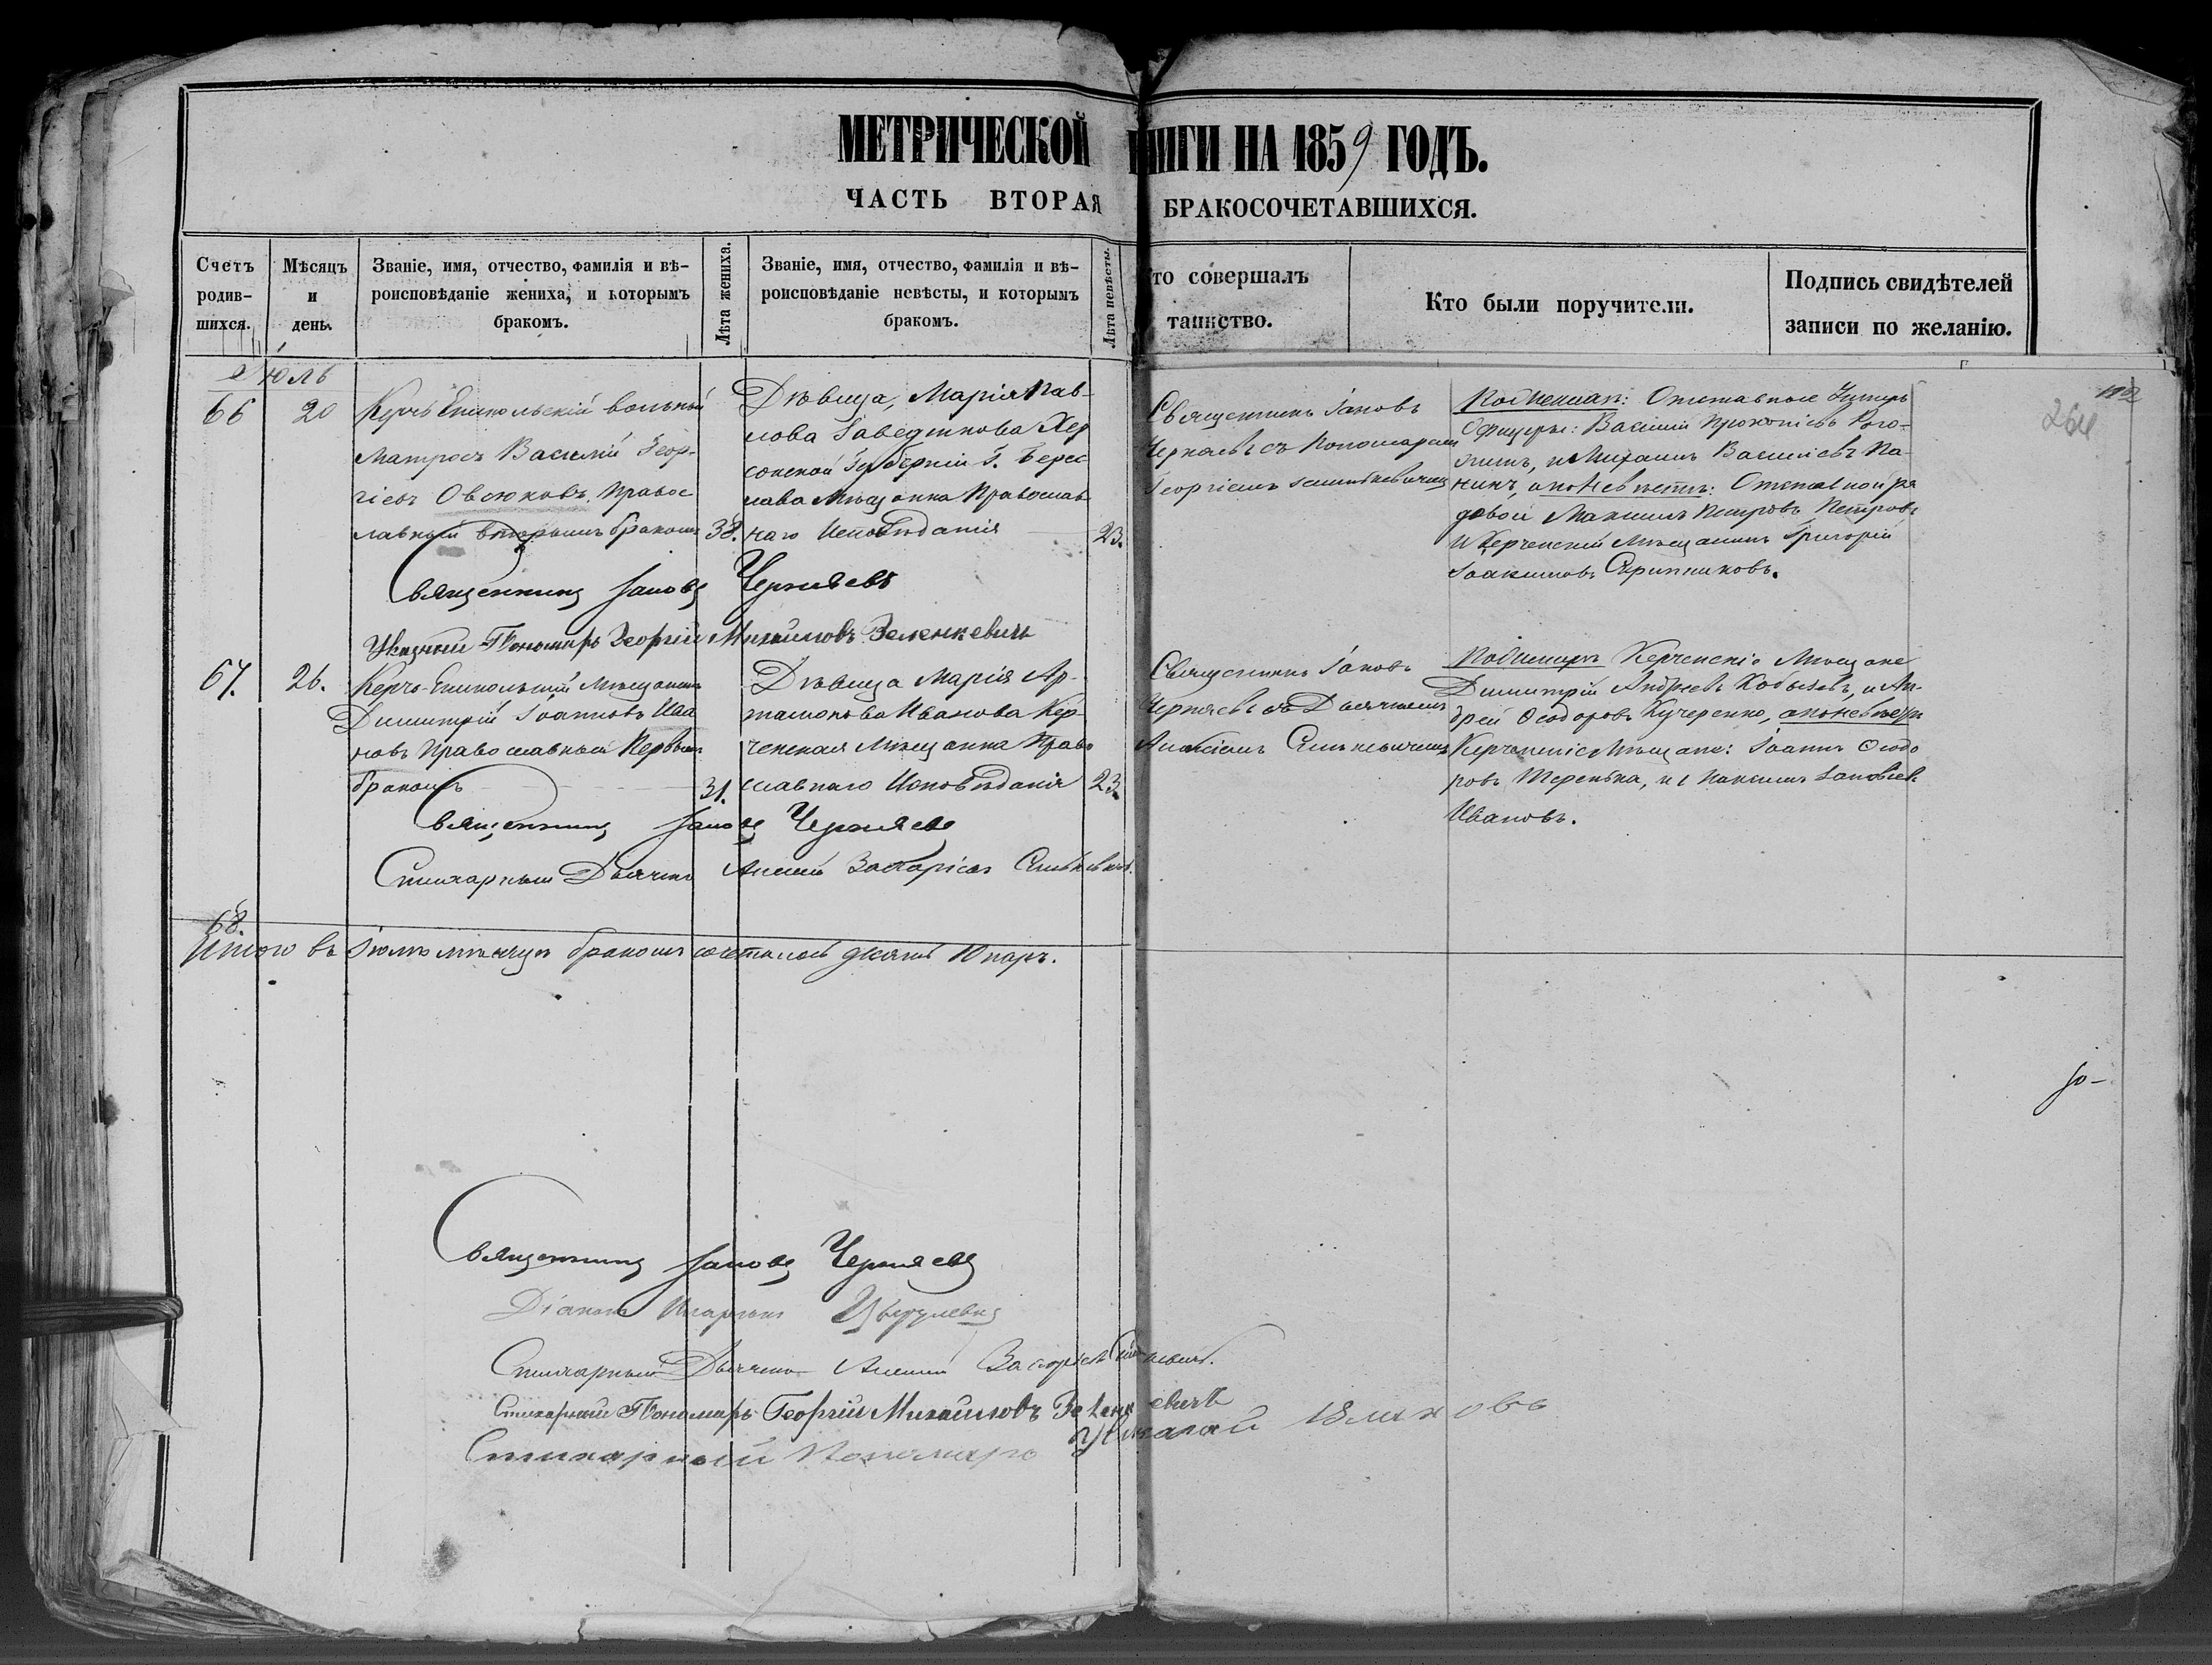 МЕТРИЧЕСКОЙ КНИГИ НА 1859 ГОДЪ.
ЧАСТЬ ВТОРАЯ БРАКОСОЧЕТАВШИХСЯ.
Счетъ родив-
шихся.
Мѣсяцъ
и
день.
Званіе, имя, отчество, фамилія и вѣ-
роисповѣданіе жениха, и которымъ
бракомъ.
Лѣта жениха.
Званіе, имя, отчество, фамилія и вѣ-
роисповѣданіе невѣсты, и которымъ
бракомъ.
Лѣта невѣсты.
то совершалъ
таинство.
Кто были поручители.
Подпись свидѣтелей
записи по желанію.
Іюль
66
20
Керчь Еникольскій вольный
Матросъ Василій Геор-
гіевъ Овсюковъ, Правос
лавный вторымъ бракомъ
38.
Дѣвица, Марія Пав-
лова Херсонской Губерніи Г. Берес
лава Мѣщанка Православ
наго Исповѣданія
23.
Священникъ Іаковъ
Черняевъ съ Пономаремъ
Георгіемъ Зеленкевичемъ
По Женихѣ: Отставные Унтеръ
Офицеры: Василій Прокопіевъ
и Михаилъ Васильевъ Па-
нинъ, а по Невѣстѣ: Отставной ря
довой Максимъ Петровъ Петровъ
и Керченскій Мѣщанинъ Григорій
Іоакимовъ Скрипниковъ.
264
Священникъ Іаковъ Черняевъ
Указный Пономарь Георгій Михайловъ Зеленкевичъ
67.
26.
Керчь-Еникольскій Мѣщанинъ
Димитрій Іоанновъ Ива
новъ Православный Первымъ
бракомъ
31.
Дѣвица Марія Ар-
тамонова Иванова Кер-
ченская Мѣщанка Право
славнаго Исповѣданія
23.
Священникъ Іаковъ
Черняевъ съ Дьячкомъ
По Женихѣ Керченскіе Мѣщане
Димитрій Андреевъ Кобылевъ, и Ан-
дрей Ѳеодоровъ Кучеренко, а по невѣстѣ
Керченскіе Мѣщане: Іоаннъ Ѳеодо
ровъ Теренька, и Максимъ Іаковлевъ
Ивановъ.
Священникъ Іаковъ Черняевъ
Стихарный Дьячекъ Захаріевъ
68.
Итого въ Іюлѣ мѣсяцѣ бракомъ сочеталось десять 10 паръ.
Священникъ Іаковъ Черняевъ
Діаконъ
Стихарный Дьячекъ Захаріевъ
Стихарный Пономарь Георгій Михайловъ Зеленкевичъ
Стихарный Пономарь